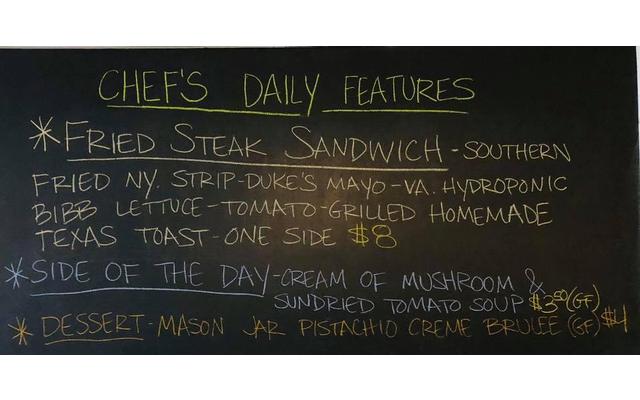 CHEF'S DAILY FEATURES
* FRIED STEAK SANDWICH - SOUTHERN
FRIED NY. STRIP - DUKE'S MAYO - VA. HYDROPONIC
BIBB LETTUCE - TOMATO - GRILLED HOMEMADE
TEXAS TOAST - ONE SIDE $8
* SIDE OF THE DAY - CREAM OF MUSHROOM &
SUNDRIED TOMATO SOUP $3.50 (GF)
* DESSERT - MASON JAR PISTACHIO CREME BRULEE (GF) $4